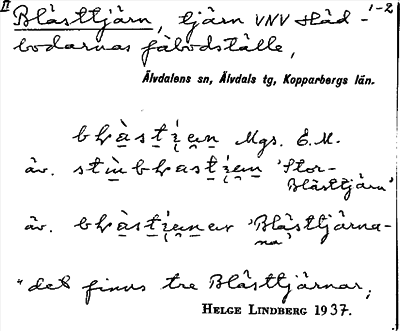 II Blåsttjärn, tjärn VNV Städ- 1-2
bodarnas fäbodställe,
Älvdalens sn, Älvdals tg, Kopparbergs län.
Mgs. E.M.
äv. 'Stor-
Blåsttjärn'
äv. 'Blåsttjärna-
na'
"det finns tre Blåsttjärnar;
HELGE LINDBERG 1937.